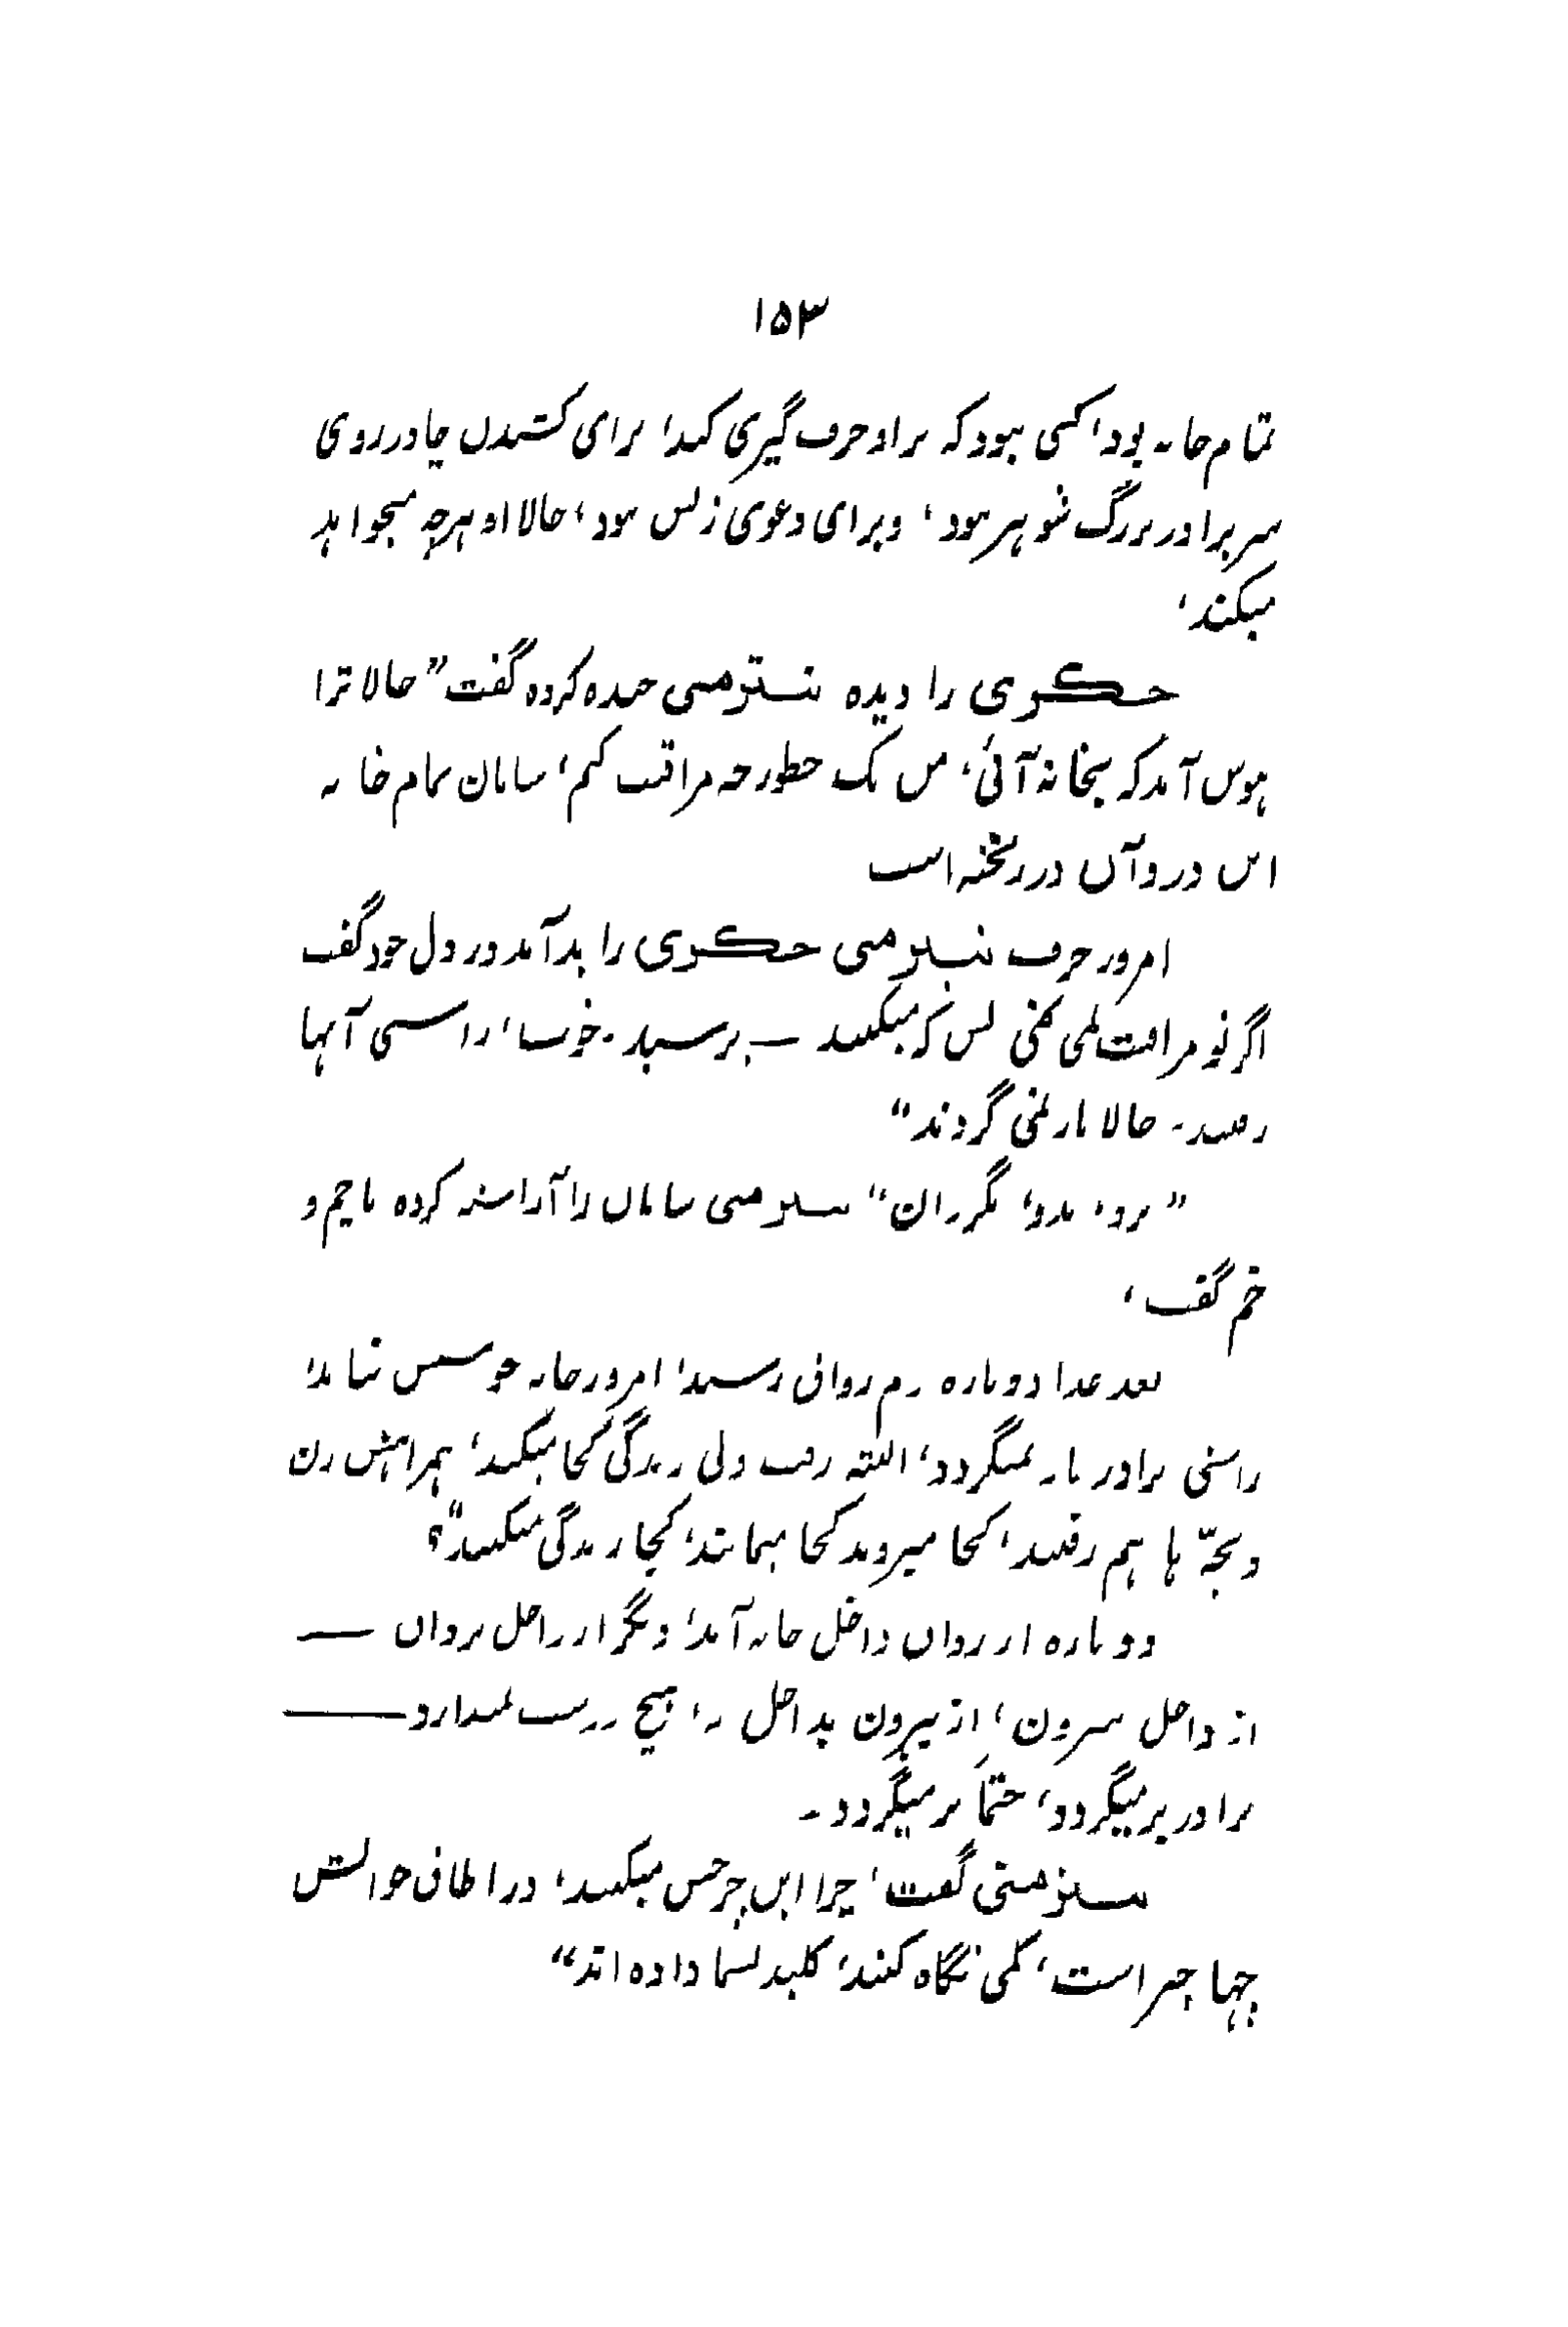 ۱۵۳
تمام خانه بود، کسی نبود که براو حرف گیری کند، برای کشیدن چادر روی
سر برادر بزرگ شوهر نبود، وبرای دعوی زنش نبود، حالا او هرچه میخواهد
میکند،
را دیده خنده کرده گفت ”حالا ترا
هوس آمد که بخانه آئی، من یک چطور چه مراقبت کنم، سامان تمام خانه
این در وآن در ریخته است
امروز حرف را بد آمد ودر دل خود گفت
اگر تو مراقبت نمی کنی پس که میکند — آنها
رفتند۔ حالا باز نمی گردند“
”برو، برو، سامان را آراسته کرده با چم و
خم گفت،
بعد غذا دوباره رسید، امروز خانه خوشش نیامد،
راستی برادر باز نمیگردد، البته رفت ولی زندگی کجا میکند، همراهش زن
و بچّه ها هم رفتند، کجا میروند کجا میمانند، کجا زندگی میکنند“؟
دوباره از داخل خانه آمد، —
از داخل بیرون، از بیرون بداخل نه، هیچ درست ندارد —
برادر برمیگردد، حتماً برمیگردد۔
گفت، چرا این چرخش میکنید، در اطاق خوابش
چها چیز است، کمی نگاه کنند، کلید بشما داده اند“